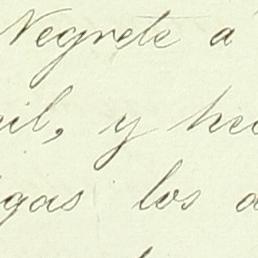 Negrete á
il, y hec
igas los a